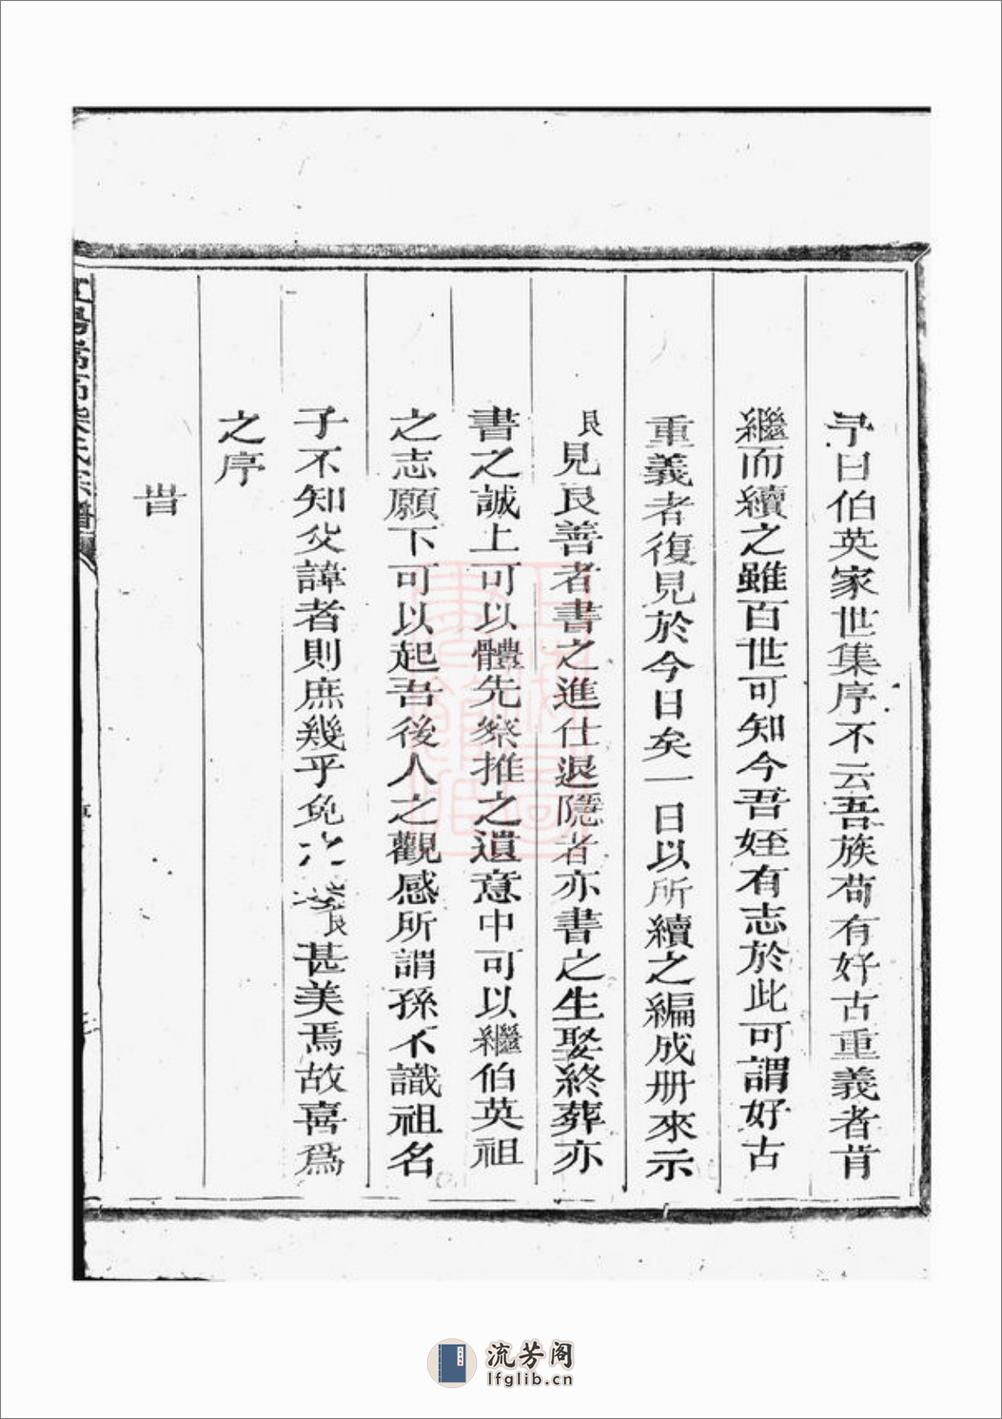 予曰伯英家世集序不云吾族苟有好古重義者肯
繼而續之雖百世可知今吾姪有志於此可謂好古
重義者復見於今日矣一日以所續之編成册來示
良見良善者書之進仕退隱者亦書之生娶終葬亦
書之誠上可以體先祭推之遺意中可以繼伯英祖
之志願下可以起吾後人之觀感所謂孫不識祖名
子不知父諱者則庶幾乎免 良甚美焉故喜爲
之序
旹
氏宗譜
流芳阁
lfglib.cn